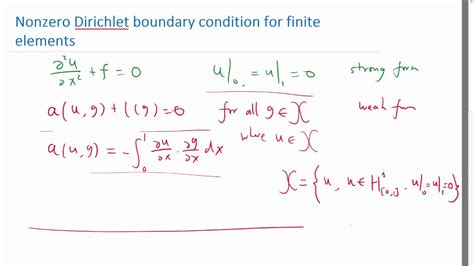 Nonzero Dirichlet boundary condition for finite
elements
∂²u/∂x² + f = 0 u|₀ = u|₁ = 0 strong form
a(u,g) + l(g) = 0 for all g ∈ X weak form
a(u,g) = -∫₀¹ ∂u/∂x · ∂g/∂x dx where u ∈ X
X = {u, u ∈ H¹[0,1], u|₀ = u|₁ = 0}